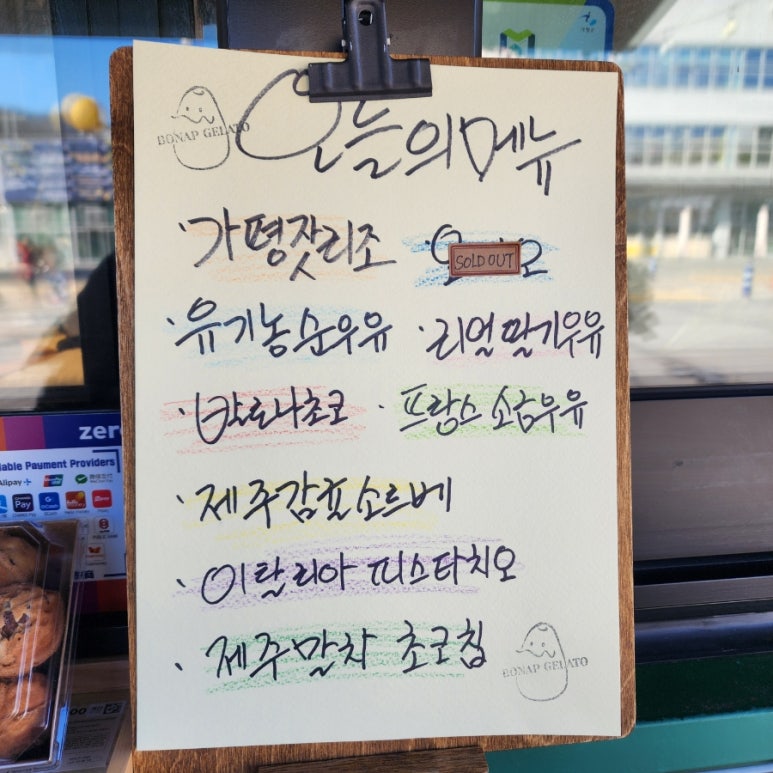 BONAP GELATO
오늘의메뉴
· 가평잣리조
SOLD OUT
· 유기농순우유 · 리얼딸기우유
· 발로나초코 · 프랑스 소금우유
· 제주감귤소르베
· 이탈리아 피스타치오
· 제주말차 초코칩
BONAP GELATO
zero
lable Payment Providers
Alipay+
Pay